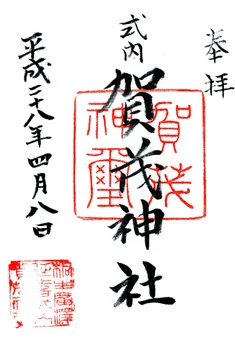 奉拝
式内
賀茂神社
賀茂
神璽
平成二十八年四月八日